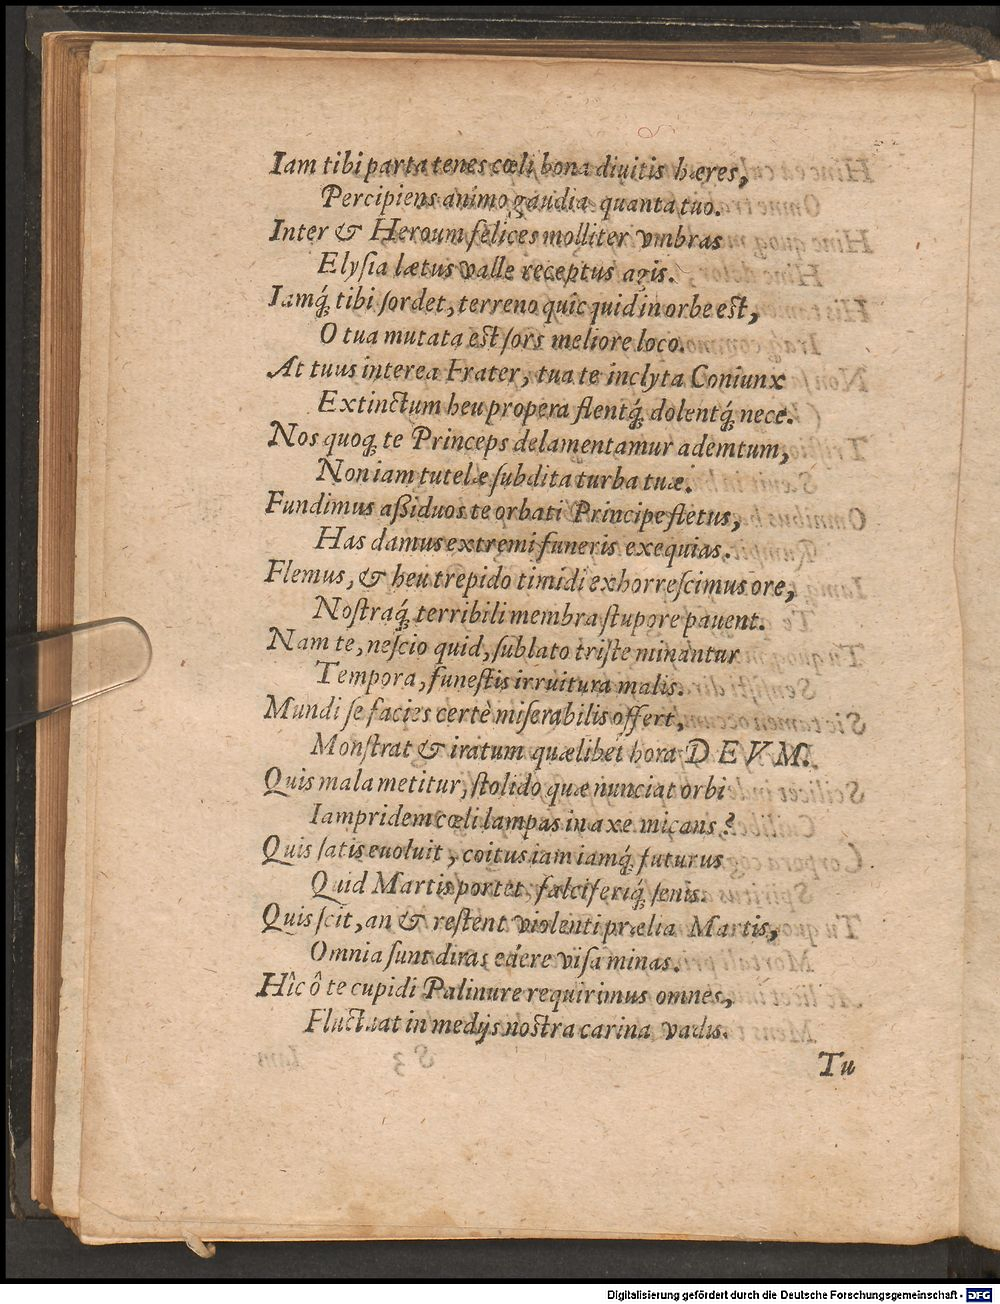 Iam tibi parta tenes cœli bona diuitis hæres,
Percipiens animo gaudia quanta tuo.
Inter & Heroum felices molliter vmbras
Elysia lætus valle receptus agis.
Iamq́; tibi sordet, terreno quîcquid in orbe est,
O tua mutata est sors meliore loco.
At tuus interea Frater, tua te inclyta Coniunx
Extinctum heu propera flentq́; dolentq́; nece.
Nos quoq; te Princeps delamentamur ademtum,
Non iam tutelæ subdita turba tuæ.
Fundimus aßiduos te orbati Principe fletus,
Has damus extremi funeris exequias.
Flemus, & heu trepido timidi exhorrescimus ore,
Nostraq́; terribili membra stupore pauent.
Nam te, nescio quid, sublato triste minantur
Tempora, funestis irruitura malis.
Mundi se facies certè miserabilis offert,
Monstrat & iratum quælibet hora DEVM.
Quis mala metitur, stolido quæ nunciat orbi
Iampridem cœli lampas in axe micans?
Quis satis euoluit, coitus iam iamq́; futurus
Quid Martis portet, falciferiq́; senis.
Quis scit, an & restent violenti prælia Martis,
Omnia sunt diras edere visa minas.
Hîc ô te cupidi Palinure requirimus omnes,
Fluctuat in medijs nostra carina vadis.
Tu
Digitalisierung gefördert durch die Deutsche Forschungsgemeinschaft - DFG